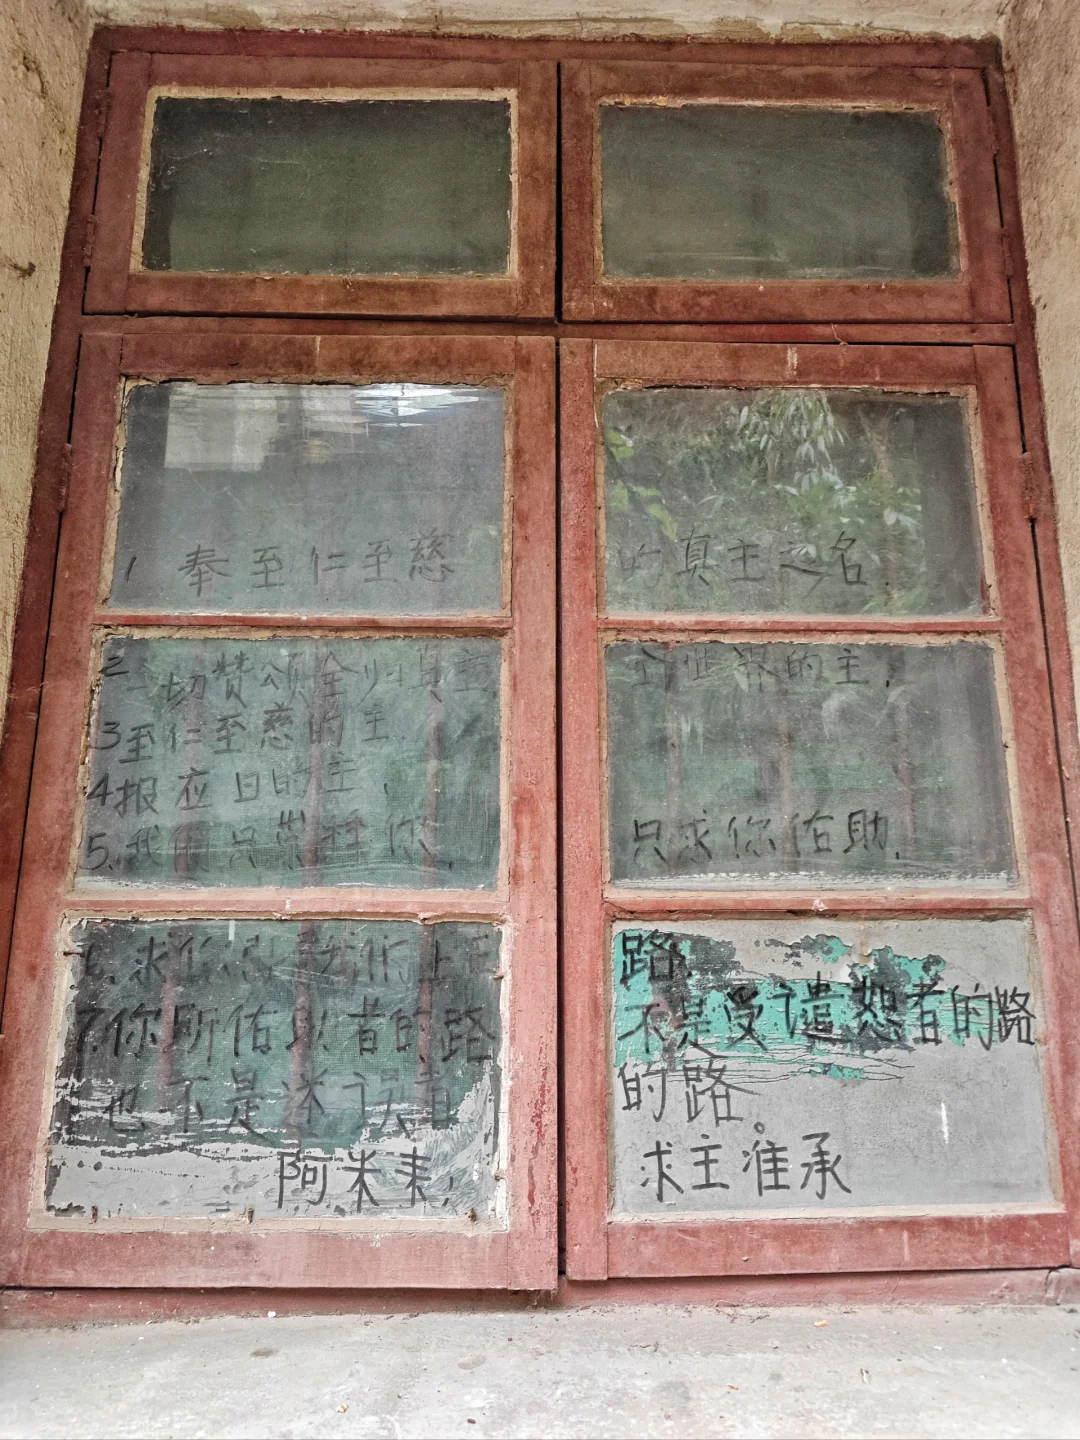 1 奉至仁至慈的真主之名.
2 一切赞颂全归真主, 全世界的主,
3 至仁至慈的主.
4 报应日的主,
5. 我们只崇拜你, 只求你佑助.
6. 求你引我们上正路.
7. 你所佑助者的路 不是受谴怒者的路
也不是迷误者的路。
阿米来, 求主准承